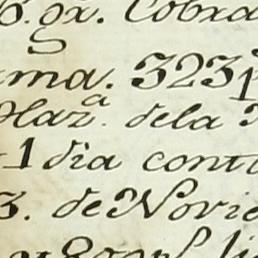 6. gr. Cobra
ma. 323 p
Haz.a dela
1 dia cont
3. de Novie